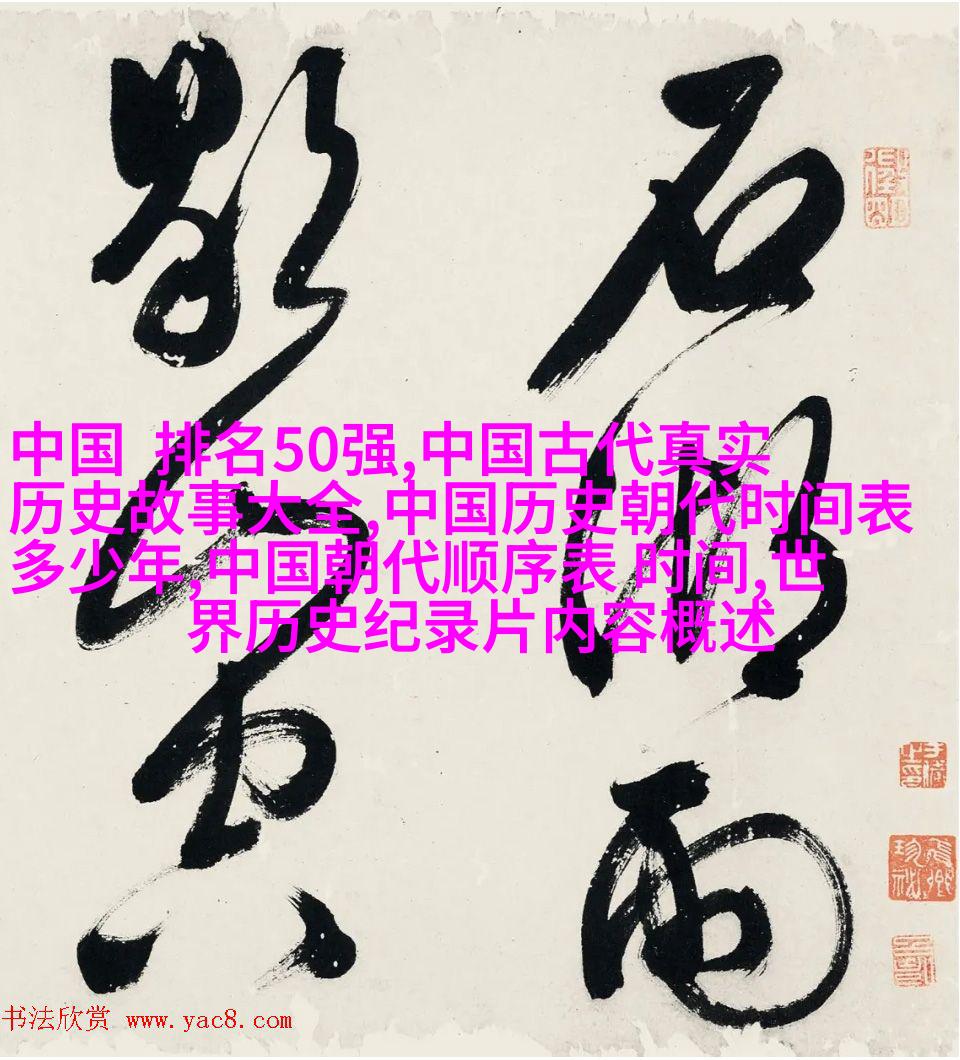 石湖雨
歇山空
中国 排名50强,中国古代真实
历史故事大全,中国历史朝代时间表
多少年,中国朝代顺序表 时间,世
界历史纪录片内容概述
书法欣赏 www.yac8.com